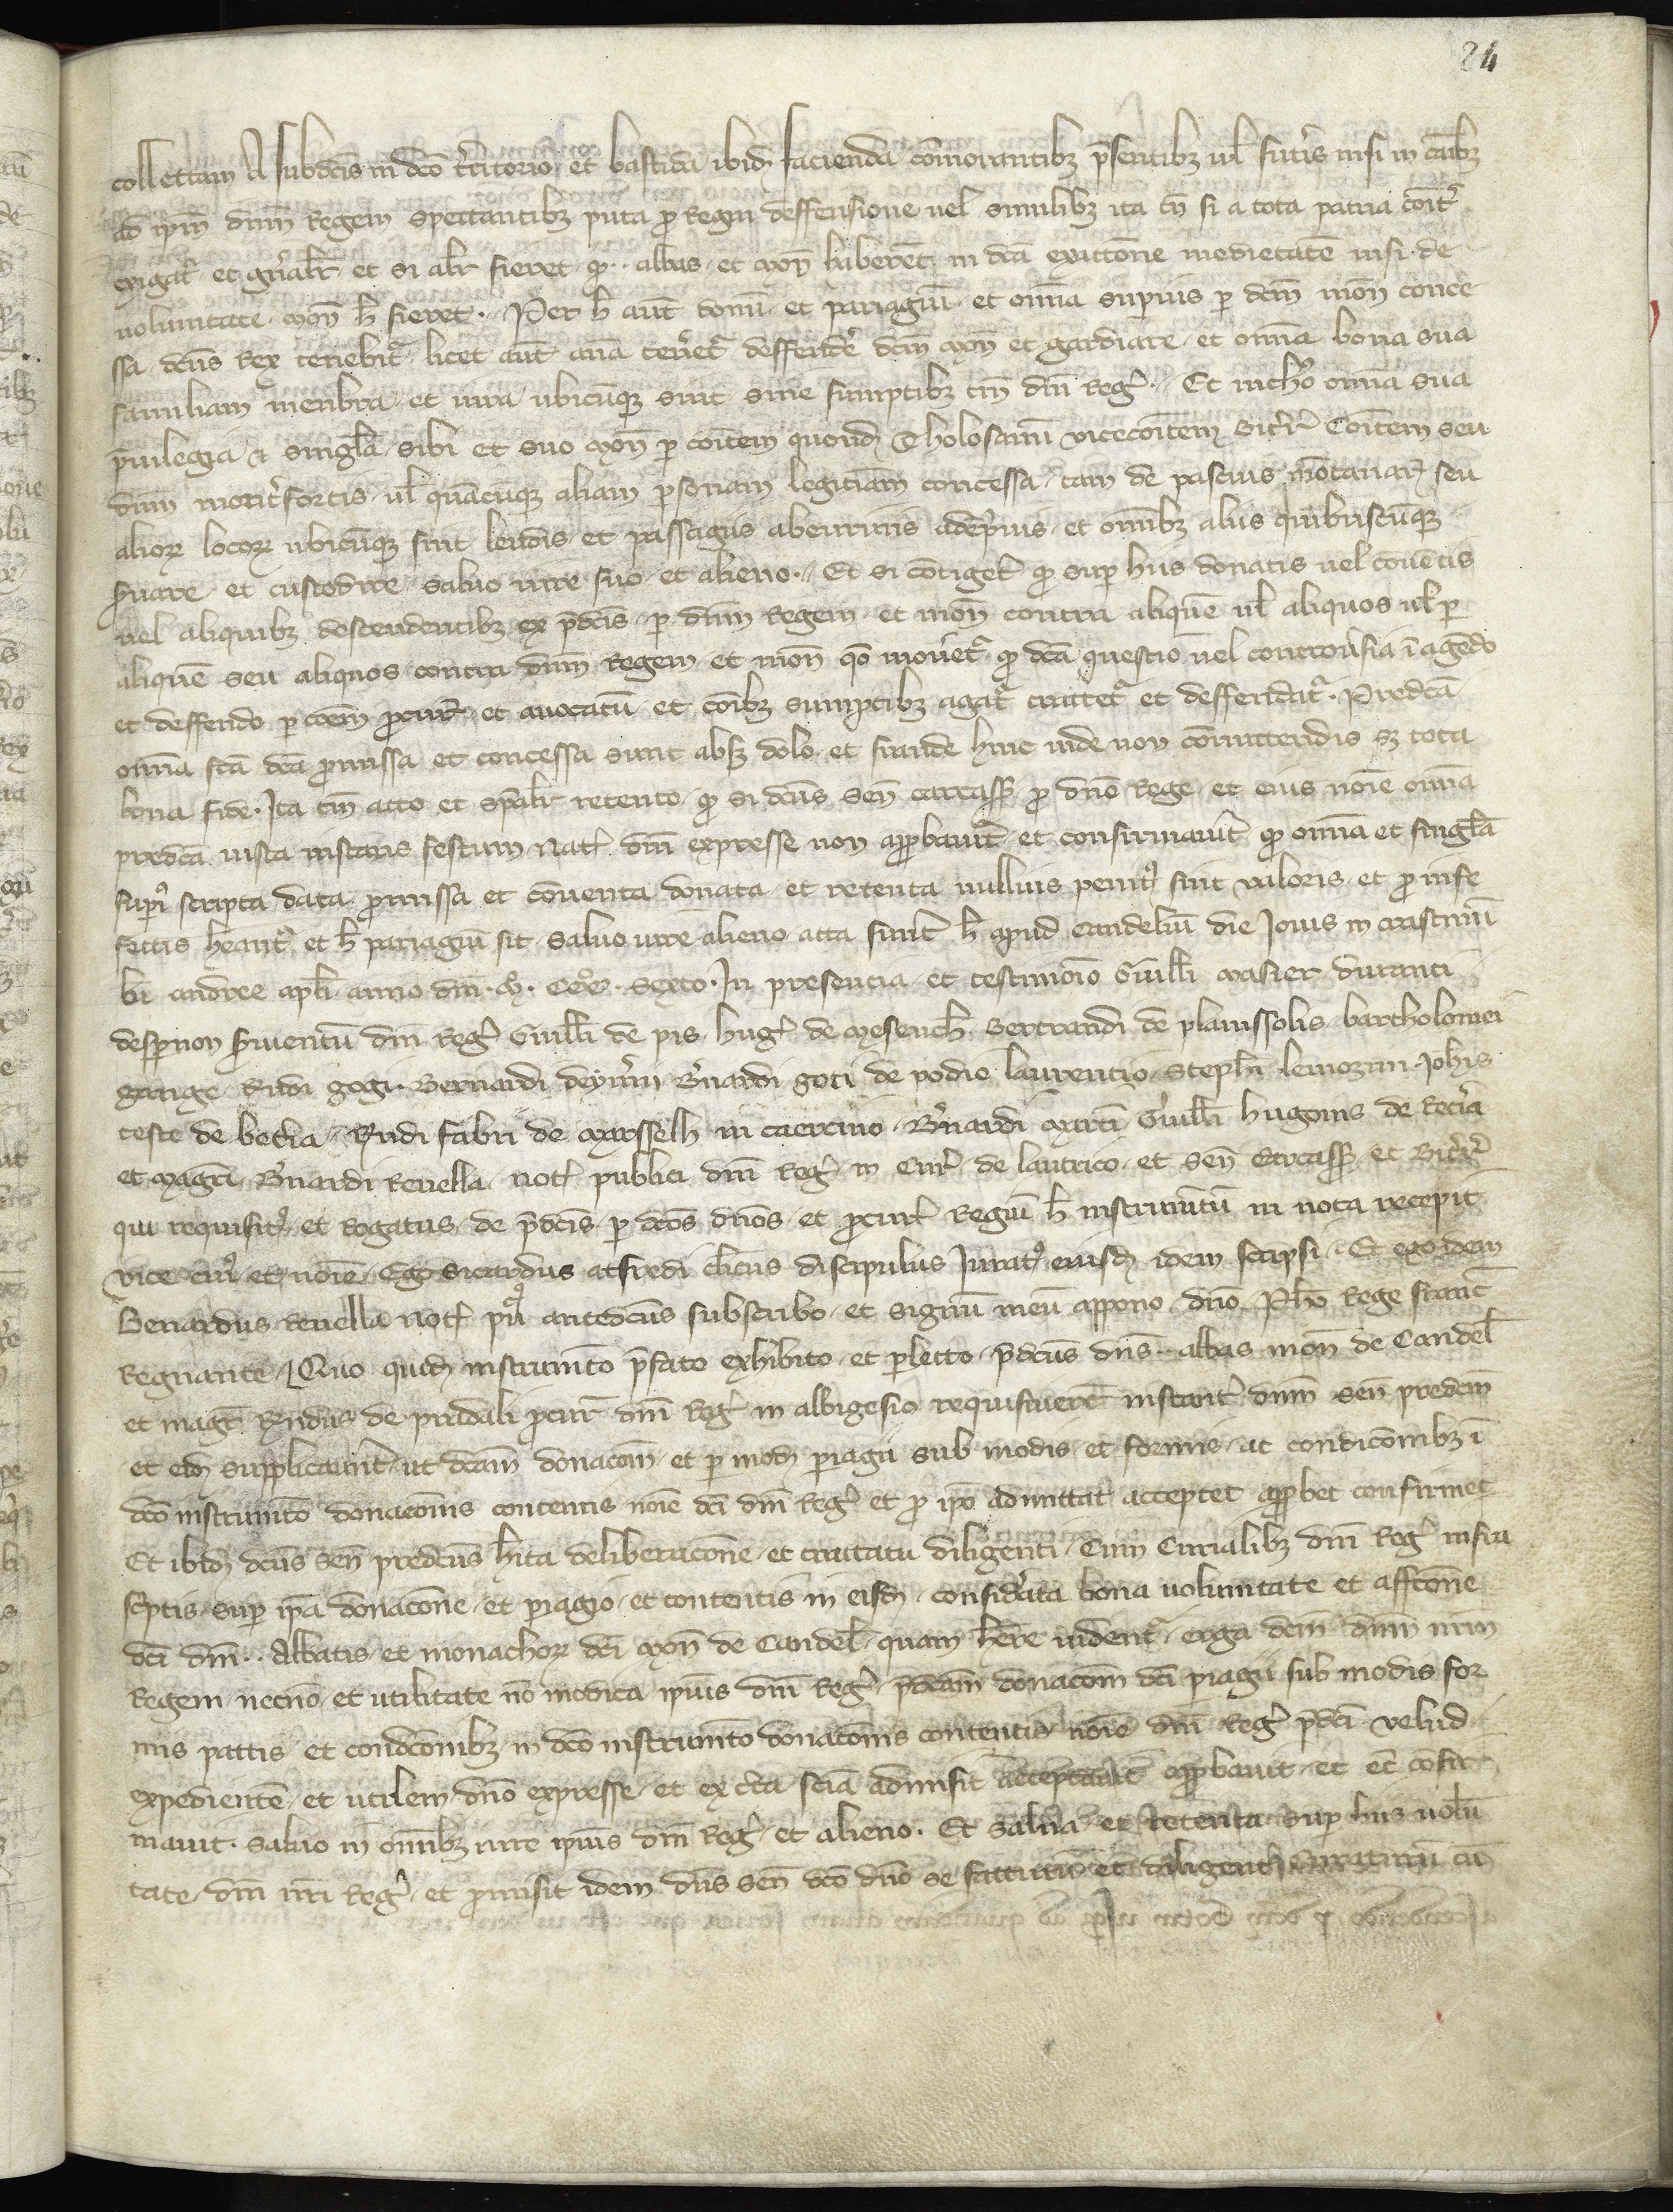 24
collettam A subdcis in dco territorio et bastida ibid facienda comorantibz presentibz vel futuris nisi in casibz
ad ipm dnm Regem spectantibz puta pro Regni deffensione vel similibz ita tn si a tota patria coit
exigat et gnalr et si alr fieret q abbas et mon haberet in dca exattone medietate nisi de
voluntate mon h fieret Per h aut donu et pariagiu et omia superius per dcm mon conce
ssa dcus Rex tenebit licet aut ana teneret deffendere dcm mon et gardiare et omia bona sua
familiam menbra et iura ubicunqz sint sine sumptibz tm dni Reg Et nichlo omia sua
privilegia et singla sibi et suo mon per comitem quond Tholosanu vicecomitem Biterr Comitem seu
dnm montisfortis vel quacunqz aliam personam legitiam concessa tam de pascuis montanar seu
alior locor ubicunqz sint leudis et passagiis abeuriuis adepriuis et omibz aliis quibuscunqz
servare et custodire salvo iure suo et alieno Et si contiget q super hiis donatis vel conventis
vel aliquibz descendentibz ex predcis per dnm Regem et mon contra aliquem vel aliquos vel per
aliquem seu aliquos contra dnm Regem et mon qo movet q dca questio vel controversia i agedo
et deffendo per coem procur et avocatu et coibz sumptibz agat tractet et deffendat Predca
omia fca dca promissa et concessa sunt absqz dolo et fraude hinc inde non comittendis sz tota
bona fide Ita tm acto et spalr retento q si dcus sen carcass pro dno Rege et eius noie omia
predca iusta instans festum Nat dni expresse non approbavit et confirmavit q omia et singla
supius scripta data promissa et conventa donata et retenta nullius penit sint valoris et pro infe
ctis heant et h pariagiu sit salvo iure alieno acta sunt h apud candeliu die Jovis in crastinu
bi andree apli anno dni M CCC sexto In presencia et testimoio Guilli masier duranti
despinon servientu dni Reg Guilli de pis hug de mesench Bertrandi de planissolis bartholomei
garige Rudi gogi Bernardi deymi Bnardi goti de podio laurentio Stephi lemozin Johis
teste de becia Rudi fabri de marsselh in caercino Bnardi marti Guilli hugonis de Recia
et magri Bnardi Revella not publici dni Reg in Cur de lautrico et Sen Carcass et Biterr
qui requisit et rogatus de predcis per dcos dnos et procur Regiu h instrumtu in nota recepit
vice cui et noie Ego Sicardus atfredi clicus discipulus Jurat eiusd idem scripsi Et ego idem
Bernardus Revella not pu antedcus subscribo et signu meu appono dno Pho Rege franc
Regnante Quo quid instrumto prefato exhibito et perlecto predcus dns abbas mon de Candel
et magr Rndus de pradali procur dni Reg in albigesio requisiveret instant dnm sen predcm
et eid supplicavnt ut dcam donacom et per mod pariagii sub modis et formis ac condicoibz i
dco instrumto donacois contentis noie dci dni Reg et pro ipo admittat acceptet approbet confirmet
Et ibid dcus sen predcus hita deliberacone et tractatu diligenti Cum Curialibz dni Reg infra
scptis super ipa donacone et pariagio et contentis in eisd considerata bona voluntate et affcone
dci dni Abbatis et monachor dci mon de Candel quam here vident erga dcm dnm nrm
Regem necno et utilitate no modica ipius dni Reg predcam donacom dci pariagii sub modis for
mis pattis et condcoibz in dco instrumto donacois contentis noie dni Reg predci velud
expediente et utilem dno expresse et ex certa scia admisit acceptavit approbavit et et cofir
mavit salvo in omibz iure ipius dni Reg et alieno Et salva et retenta super hiis volu
tate dni nri Reg et promisit idem dns sen dco dno se facturu et diligent curaturu cu